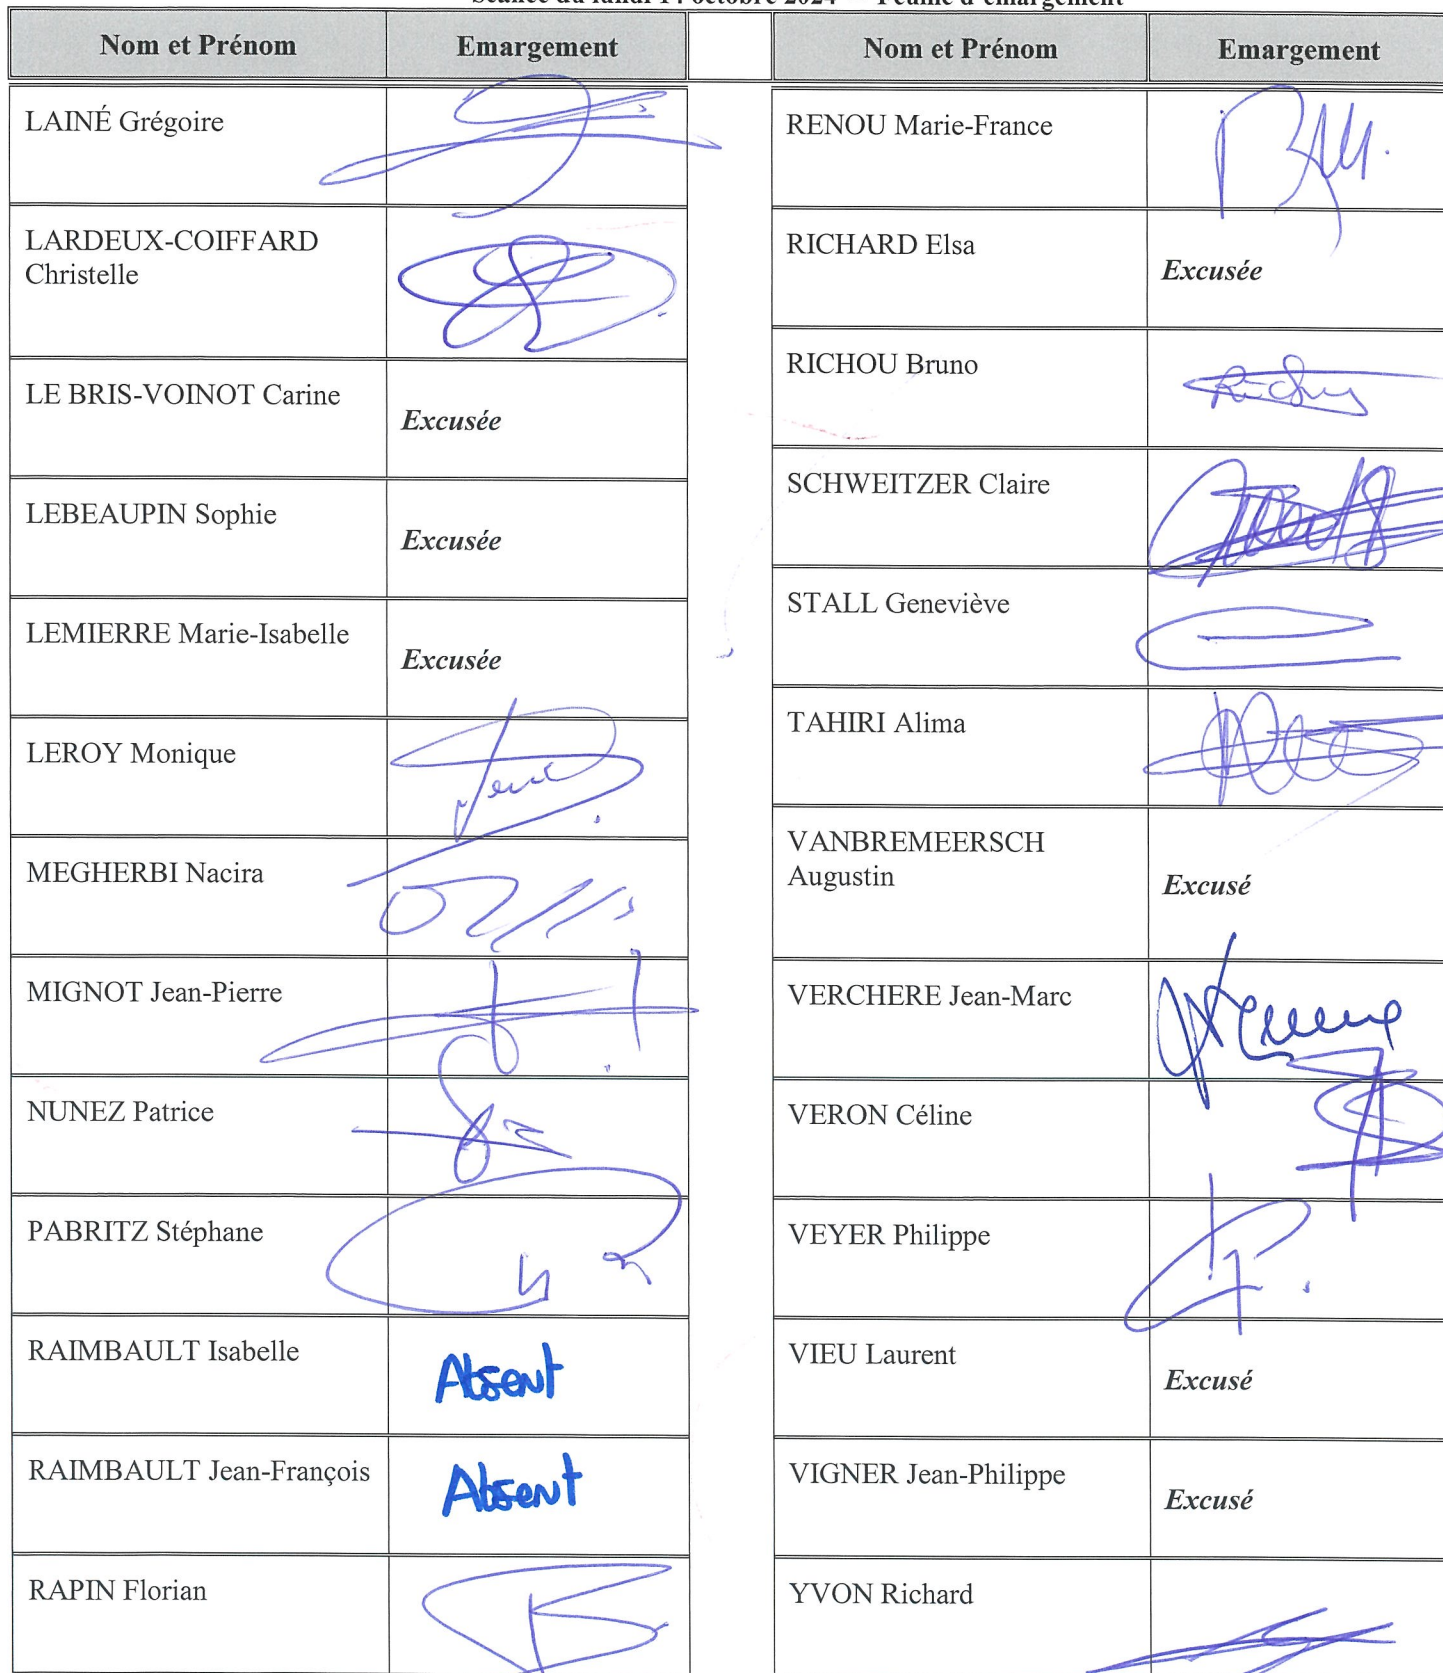 Séance du lundi 14 octobre 2024 Feuille d'émargement
Nom et Prénom Emargement
LAINÉ Grégoire
LARDEUX-COIFFARD
Christelle
LE BRIS-VOINOT Carine
Excusée
LEBEAUPIN Sophie
Excusée
LEMIERRE Marie-Isabelle
Excusée
LEROY Monique
MEGHERBI Nacira
MIGNOT Jean-Pierre
NUNEZ Patrice
PABRITZ Stéphane
RAIMBAULT Isabelle
Absent
RAIMBAULT Jean-François
Absent
RAPIN Florian
Nom et Prénom Emargement
RENOU Marie-France
RICHARD Elsa
Excusée
RICHOU Bruno
SCHWEITZER Claire
STALL Geneviève
TAHIRI Alima
VANBREMEERSCH
Augustin
Excusé
VERCHERE Jean-Marc
VERON Céline
VEYER Philippe
VIEU Laurent
Excusé
VIGNER Jean-Philippe
Excusé
YVON Richard